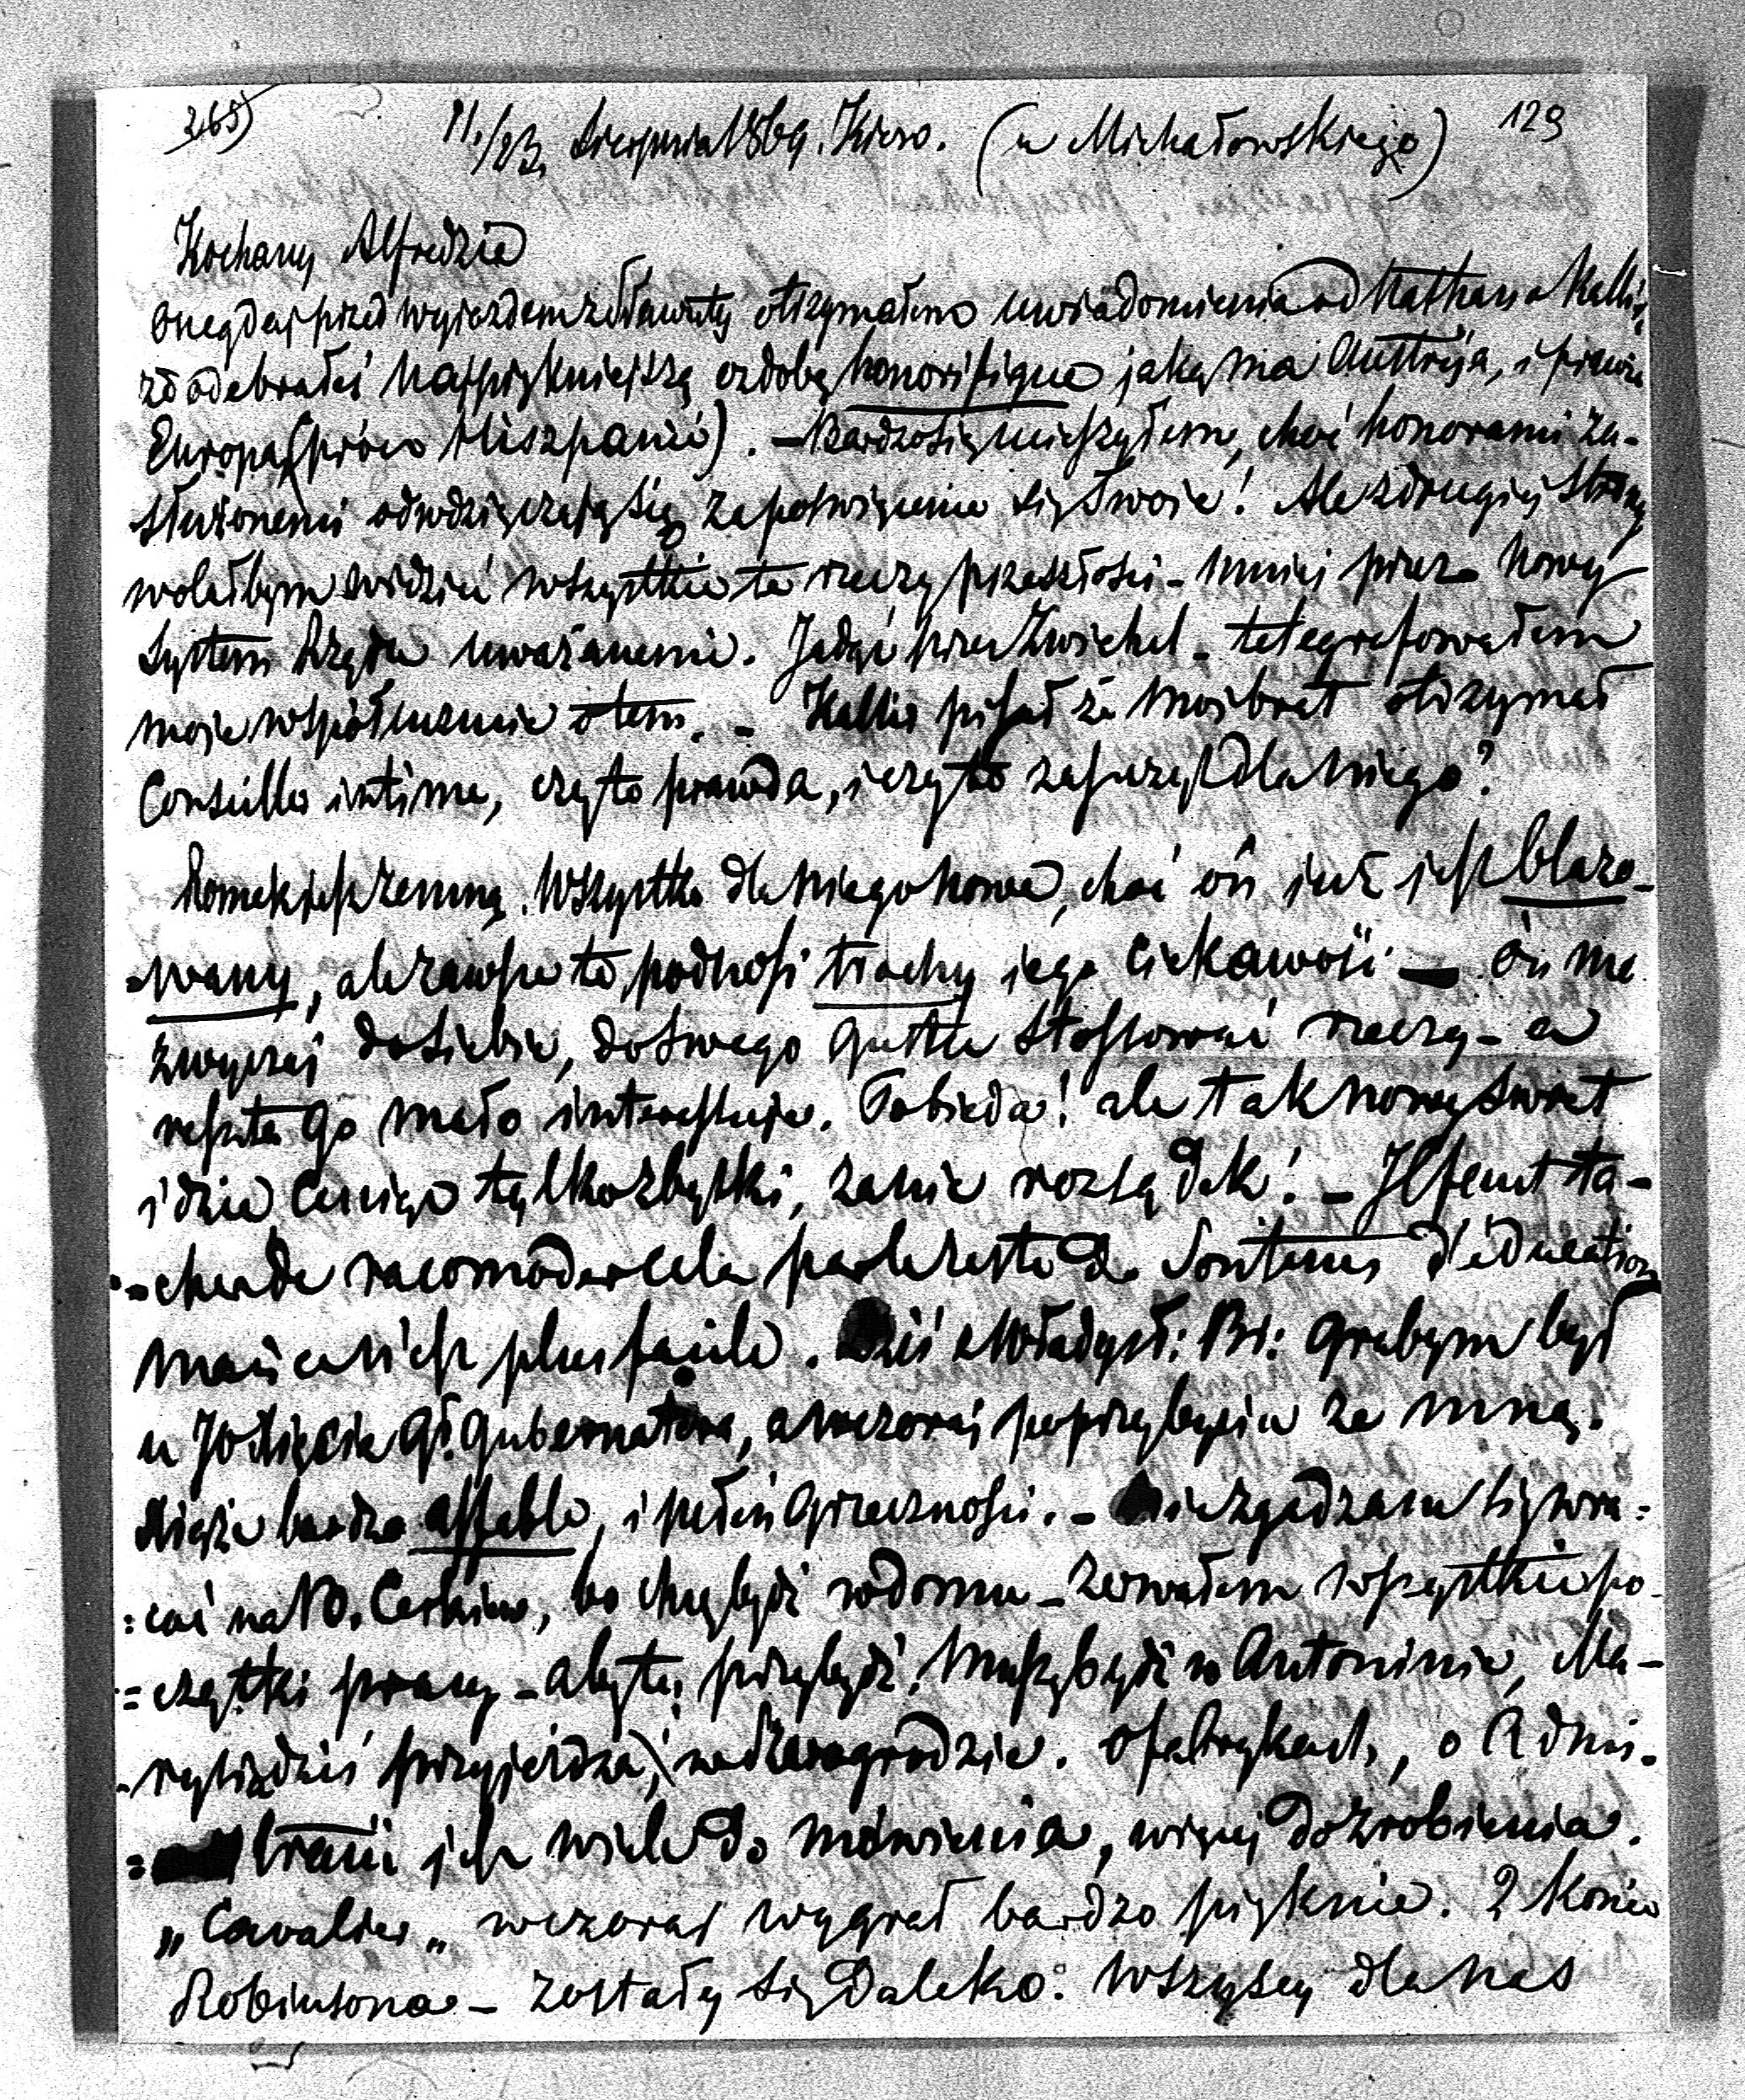 265) 11./23. Sierpnia 1869. Kiew. (u Michałowskiego) 129
Kochany Alfredzie
Onegdaj przed wyjazdem ze Sławuty otrzymałem uwiadomienie od Nathana Kallir,
że odebrałeś najpiękniejszą ozdobę honorifique jaką ma Austrija, i
Europa (prócz Hiszpanii). – Bardzo się ucieszyłem, choć honorami za-
służonemi odwdzięczają się za poświęcenie się twoje! Ale z drugiej strony
wolałbym widzieć wszystkie te rzeczy przeszłości – mniej przez nowy
system Rządu uważanemi. Jadąc przez Zwiahel – telegrafowałem
moje współuczucie o tem. – Kallir pisał że mój brat otrzymał
Conseiller intime, czy to prawda, i czy to zaszczyt dla niego?
Romek jest ze mną. Wszystko dla niego nowe, choć on już jest blazo-
wany, ale zawsze to podnosi trochę jego ciekawość — on ma
zwyczaj do siebie, do swego gustu stosować rzeczy – a
reszta go mało interesuje. To bieda! ale tak nowy świat
idzie ceniąc tylko zbytki, za nic rozsądek! – Il faut ta-
cher de racomoder cela par le reste de Soutenus d'éducation
mais ce n'est plus facile. Dziś z Władysł: Br: Grabym był
u Xsięcia Gł. Gubernatora, a wczoraj po przybyciu ze mną.
Xiąże bardzo affable, i pełen grzeczności. – Nie zgadzam się wra=
=cać na B. Cerkiew, bo chcę być w domu – zerwałem wszystkie po-
=czątki pracy – aby tu przybyć. Muszę być w Antoninie, Ma-
rysia dziś przyjeżdża, i w Szerogrodzie. O fabrykach, o Admi-
=stracii jest wiele do mówienia, więcej do zrobienia.
„Cavalier„ wczoraj wygrał bardzo pięknie. 2 konie
Robinsona – zostały się daleko: wszyscy dla nas